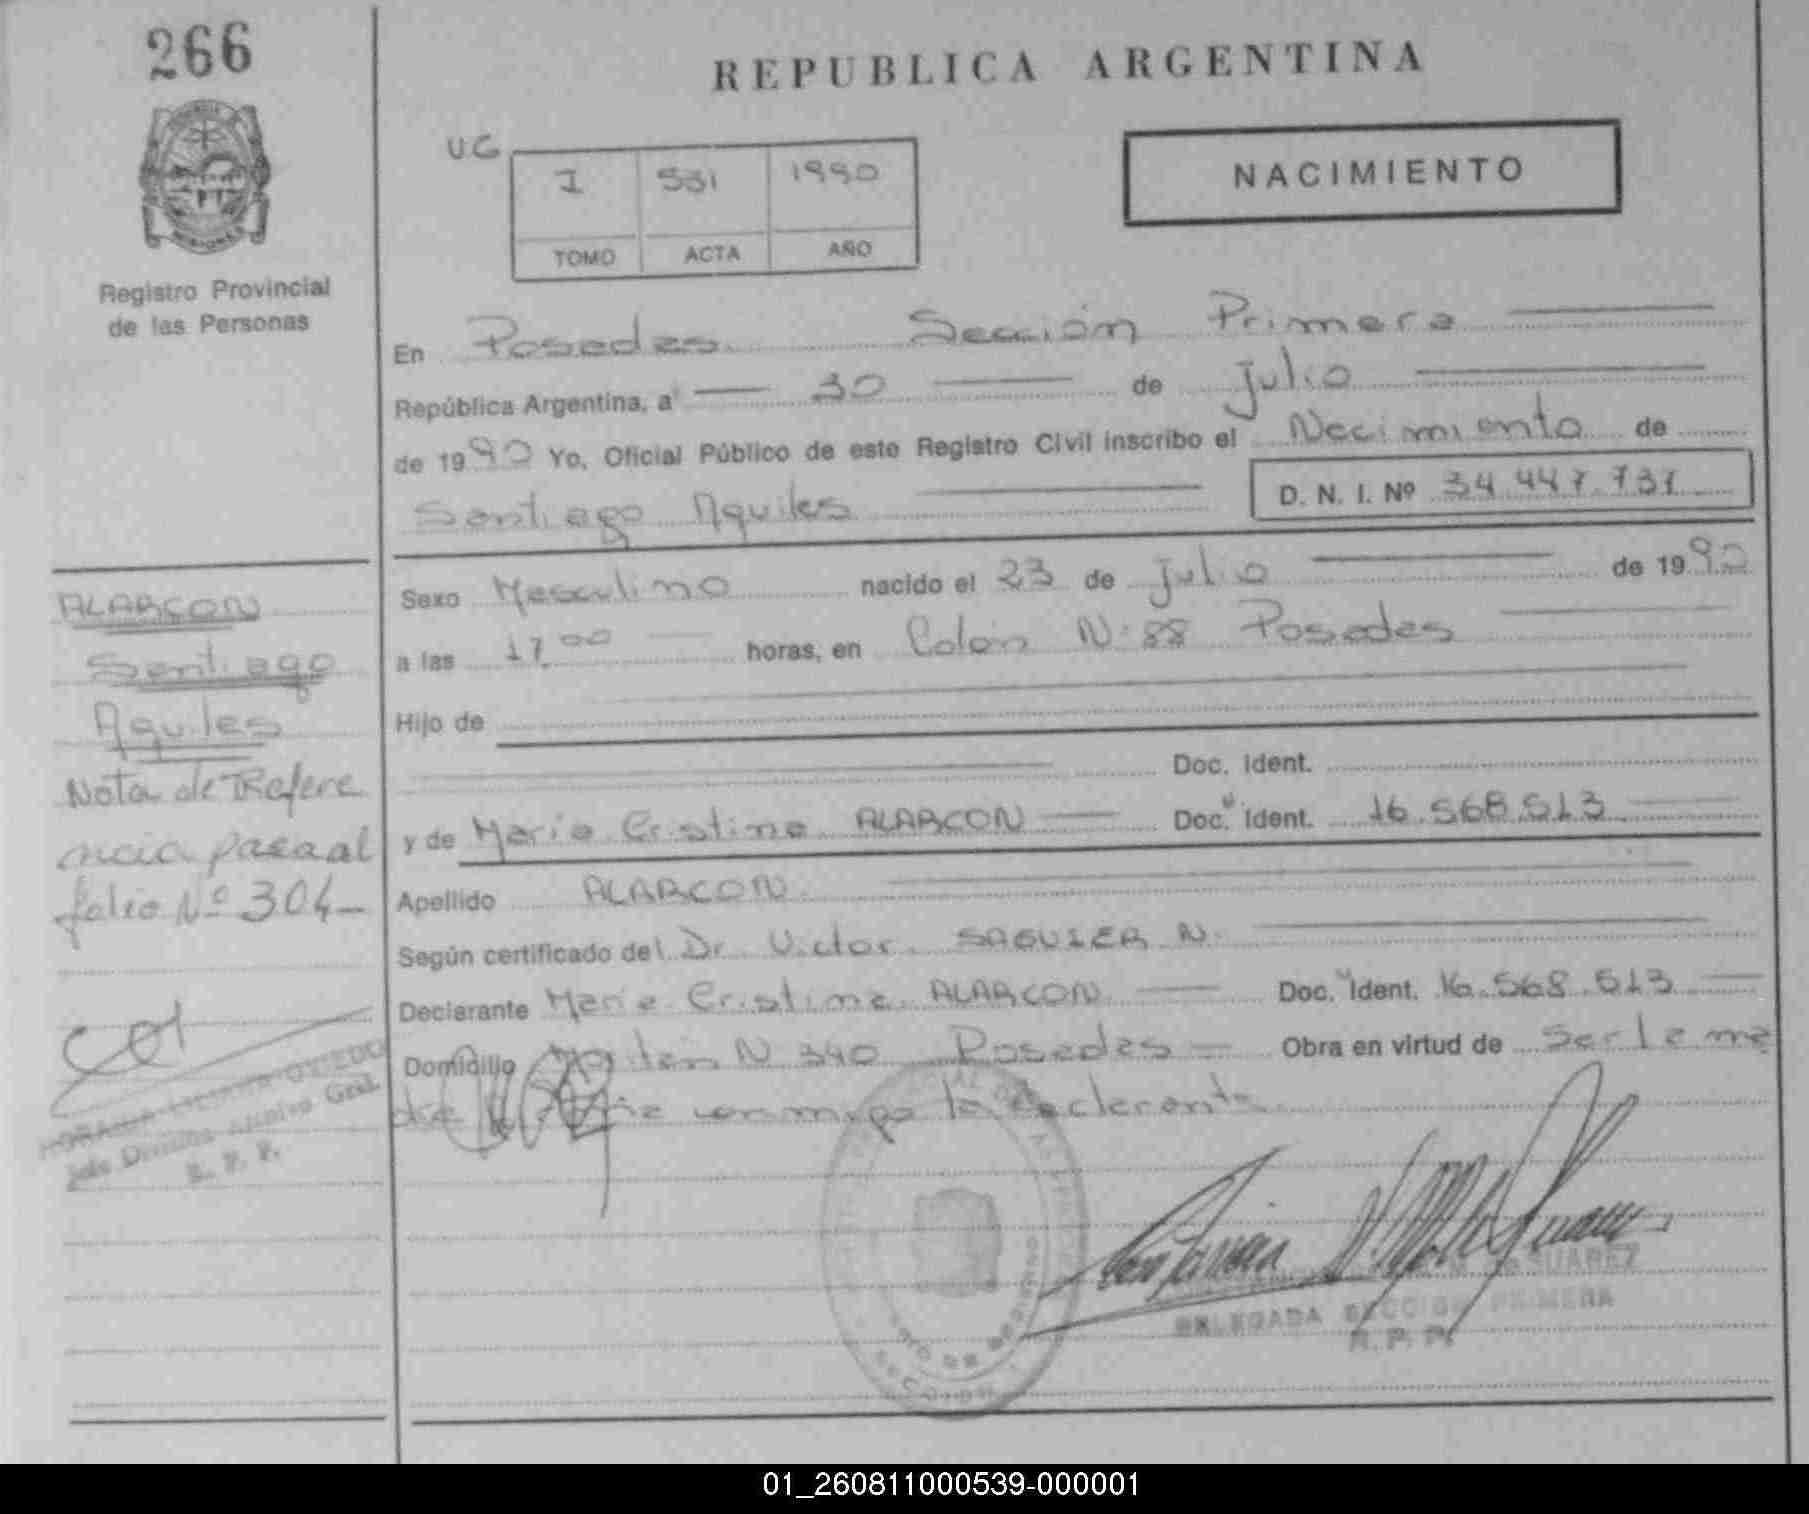 266
REPUBLICA ARGENTINA
UG
I 531 1990
TOMO ACTA AÑO
NACIMIENTO
MISIONES
Registro Provincial
de las Personas
En Posadas Sección Primera
República Argentina, a 30 de julio
de 1990 Yo, Oficial Público de este Registro Civil inscribo el Nacimiento de
Santiago Aquiles D. N. I. Nº 34.447.737
Sexo Masculino nacido el 23 de julio de 1990
a las 17,00 horas, en Colón Nº 88 Posadas
Hijo de
Doc. Ident.
y de María Cristina ALARCON Doc. Ident. 16.568.513
Apellido ALARCON
Según certificado del Dr. Victor SAGUIER N.
Declarante María Cristina ALARCON Doc. Ident. 16.568.513
Domicilio N 340 Posadas Obra en virtud de ser la ma
dre conmigo la declarante
ALARCON
Santiago
Aquiles
Nota de Refere
ncia pasa al
folio Nº 304
OVIEDO
Jefe División Archivo Gral.
R. P. P.
SUAREZ
DELEGADA SECCION PRIMERA
R. P. P.
01_260811000539-000001